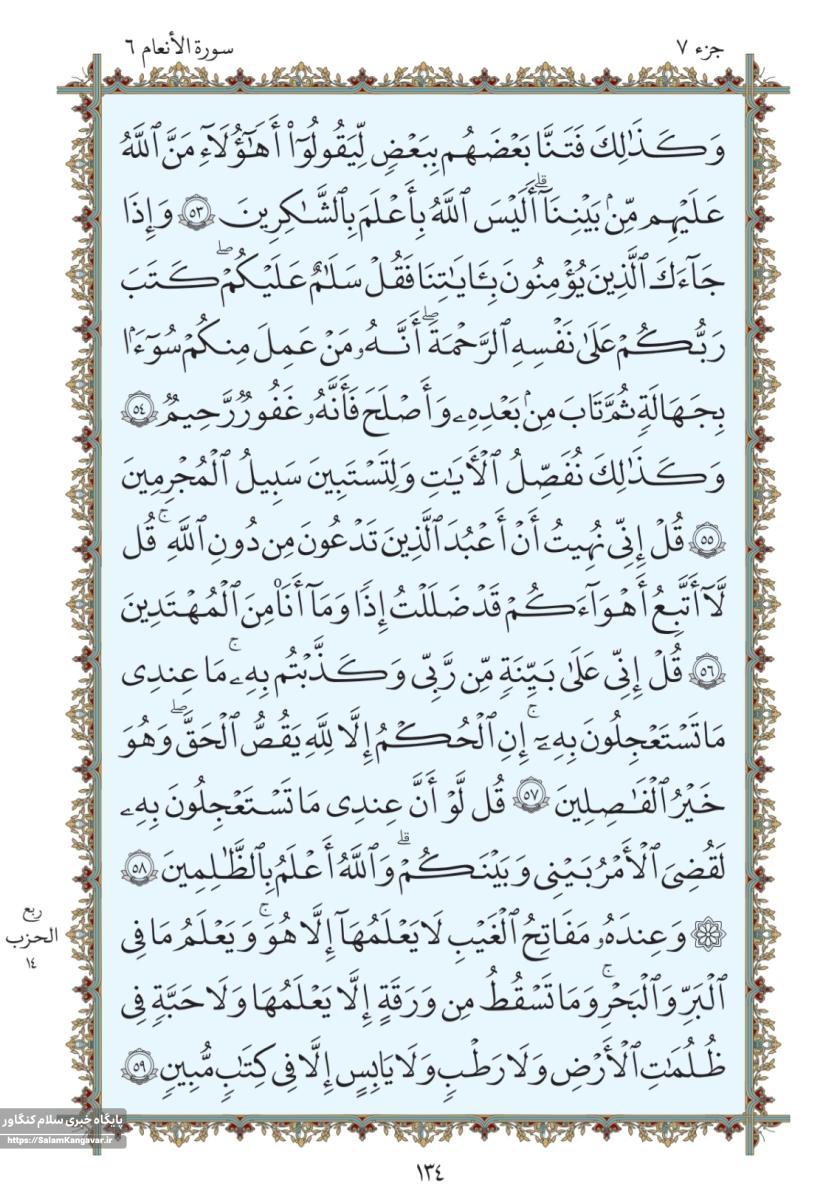 جزء ٧
سورة الأنعام ٦
وَكَذَٰلِكَ فَتَنَّا بَعْضَهُم بِبَعْضٍ لِّيَقُولُوٓا۟ أَهَٰٓؤُلَآءِ مَنَّ ٱللَّهُ
عَلَيْهِم مِّنۢ بَيْنِنَآ ۗ أَلَيْسَ ٱللَّهُ بِأَعْلَمَ بِٱلشَّٰكِرِينَ ٥٣ وَإِذَا
جَآءَكَ ٱلَّذِينَ يُؤْمِنُونَ بِـَٔايَٰتِنَا فَقُلْ سَلَٰمٌ عَلَيْكُمْ ۖ كَتَبَ
رَبُّكُمْ عَلَىٰ نَفْسِهِ ٱلرَّحْمَةَ ۖ أَنَّهُۥ مَنْ عَمِلَ مِنكُمْ سُوٓءًۢا
بِجَهَٰلَةٍ ثُمَّ تَابَ مِنۢ بَعْدِهِۦ وَأَصْلَحَ فَأَنَّهُۥ غَفُورٌ رَّحِيمٌ ٥٤
وَكَذَٰلِكَ نُفَصِّلُ ٱلْـَٔايَٰتِ وَلِتَسْتَبِينَ سَبِيلُ ٱلْمُجْرِمِينَ
٥٥ قُلْ إِنِّى نُهِيتُ أَنْ أَعْبُدَ ٱلَّذِينَ تَدْعُونَ مِن دُونِ ٱللَّهِ ۚ قُل
لَّآ أَتَّبِعُ أَهْوَآءَكُمْ قَدْ ضَلَلْتُ إِذًا وَمَآ أَنَا۠ مِنَ ٱلْمُهْتَدِينَ
٥٦ قُلْ إِنِّى عَلَىٰ بَيِّنَةٍ مِّن رَّبِّى وَكَذَّبْتُم بِهِۦ ۚ مَا عِندِى
مَا تَسْتَعْجِلُونَ بِهِۦٓ ۚ إِنِ ٱلْحُكْمُ إِلَّا لِلَّهِ يَقُصُّ ٱلْحَقَّ ۖ وَهُوَ
خَيْرُ ٱلْفَٰصِلِينَ ٥٧ قُل لَّوْ أَنَّ عِندِى مَا تَسْتَعْجِلُونَ بِهِۦ
لَقُضِىَ ٱلْأَمْرُ بَيْنِى وَبَيْنَكُمْ ۗ وَٱللَّهُ أَعْلَمُ بِٱلظَّٰلِمِينَ ٥٨
۞ وَعِندَهُۥ مَفَاتِحُ ٱلْغَيْبِ لَا يَعْلَمُهَآ إِلَّا هُوَ ۚ وَيَعْلَمُ مَا فِى
ٱلْبَرِّ وَٱلْبَحْرِ ۚ وَمَا تَسْقُطُ مِن وَرَقَةٍ إِلَّا يَعْلَمُهَا وَلَا حَبَّةٍ فِى
ظُلُمَٰتِ ٱلْأَرْضِ وَلَا رَطْبٍ وَلَا يَابِسٍ إِلَّا فِى كِتَٰبٍ مُّبِينٍ ٥٩
ربع
الحزب
١٤
پایگاه خبری سلام کنگاور
https://SalamKangavar.ir
١٣٤